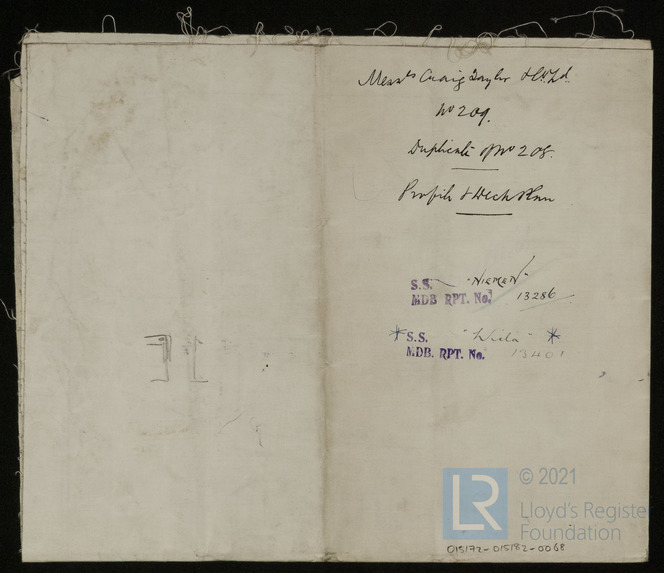 Messrs Craig Taylor & Co. Ld.
No 209.
Duplicate of No 208.
Profile & Deck Plan
S.S. "NIEMEN"
MDB RPT. No. 13286
*S.S. "Wisla" *
MDB. RPT. No. 13401
LR
© 2021
Lloyd's Register
Foundation
015172-015182-0068